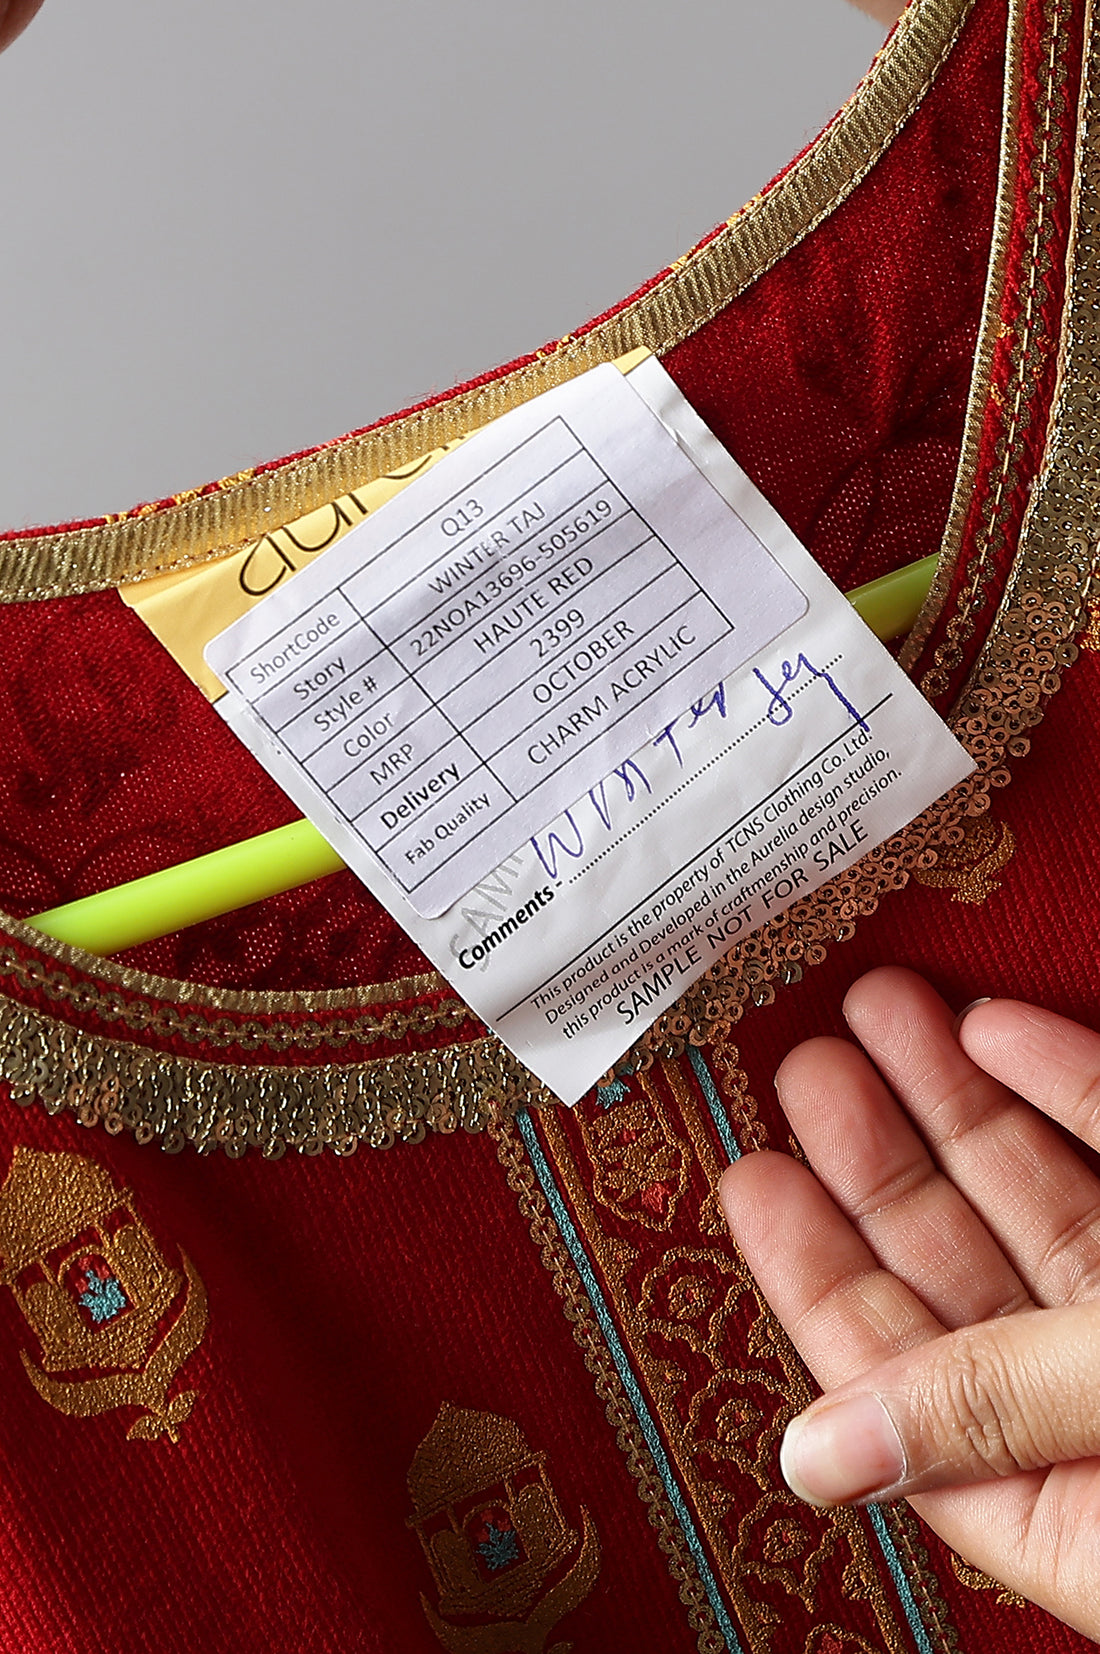 ShortCode Q13
Story WINTER TAJ
Style # 22NOA13696-505619
Color HAUTE RED
MRP 2399
Delivery OCTOBER
Fab Quality CHARM ACRYLIC
Comments -
This product is the property of TCNS Clothing Co. Ltd.
Designed and Developed in the Aurelia design studio,
this product is a mark of craftmenship and precision.
SAMPLE NOT FOR SALE